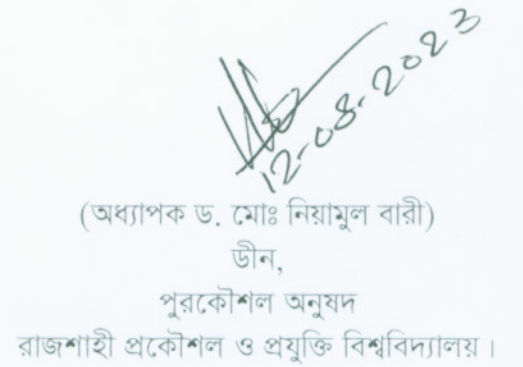 12.08.2023
(অধ্যাপক ড. মোঃ নিয়ামুল বারী)
ডীন,
পুরকৌশল অনুষদ
রাজশাহী প্রকৌশল ও প্রযুক্তি বিশ্ববিদ্যালয়।